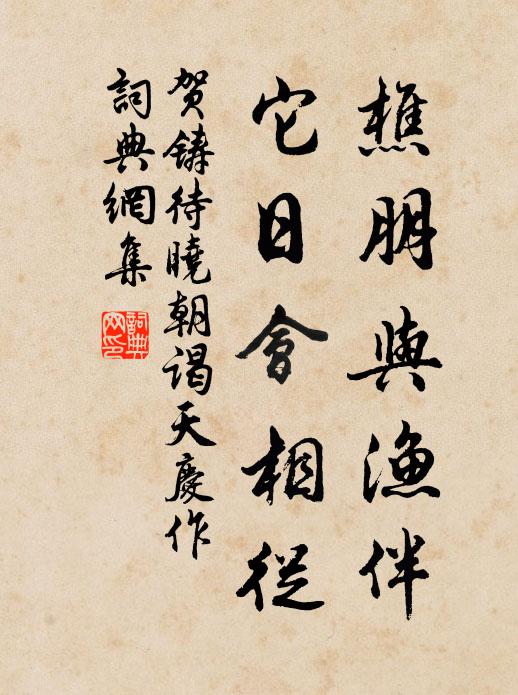 樵朋與漁伴
它日會相從
賀鑄待曉朝谒天慶作
詞典網集
詞典網印